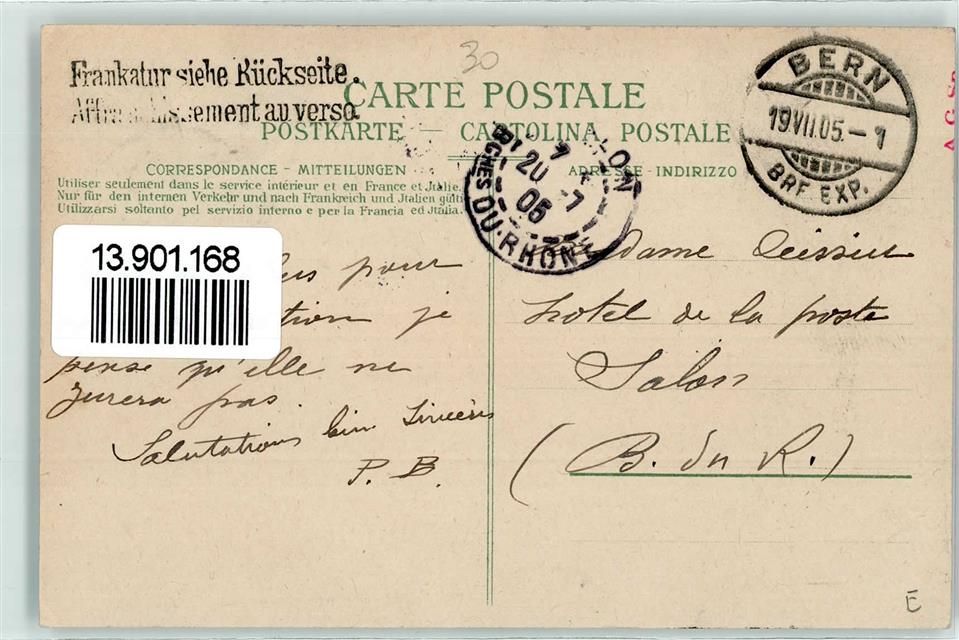 30
Frankatur siehe Rückseite.
Affranchissement au verso
CARTE POSTALE
POSTKARTE — CARTOLINA POSTALE
BERN
19 VII.05.-1
BRF. EXP.
CORRESPONDANCE - MITTEILUNGEN
ADRESSE - INDIRIZZO
Utiliser seulement dans le service intérieur et en France et Jtalie.
Nur für den internen Verkehr und nach Frankreich und Jtalien gülti
Utilizzarsi soltanto pel servizio interno e per la Francia ed Jtalia.
LON
20 -7
05
BCHES DU-RHONE
13.901.168
pour
tion je
pense qu'elle ne
jurera pas.
Salutations bien sincères
P. B.
dame
hotel de la poste
Salon
(B. du R.)
E